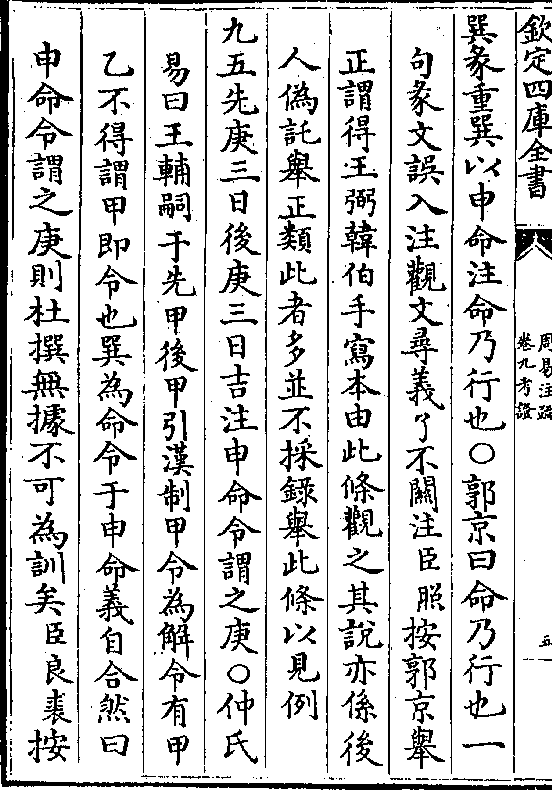 欽定四庫全書
周易注疏
卷九考證
五
巽彖重巽以申命注命乃行也○郭京曰命乃行也一
句彖文誤入注觀文尋義了不關注臣照按郭京舉
正謂得王弼韓伯手寫本由此條觀之其說亦係後
人偽託舉正類此者多並不採錄舉此條以見例
九五先庚三日後庚三日吉注申命令謂之庚○仲氏
易曰王輔嗣于先甲後甲引漢制甲令為解令有甲
乙不得謂甲即令也巽為命令于申命義自合然曰
申命令謂之庚則杜撰無據不可為訓矣臣良裘按